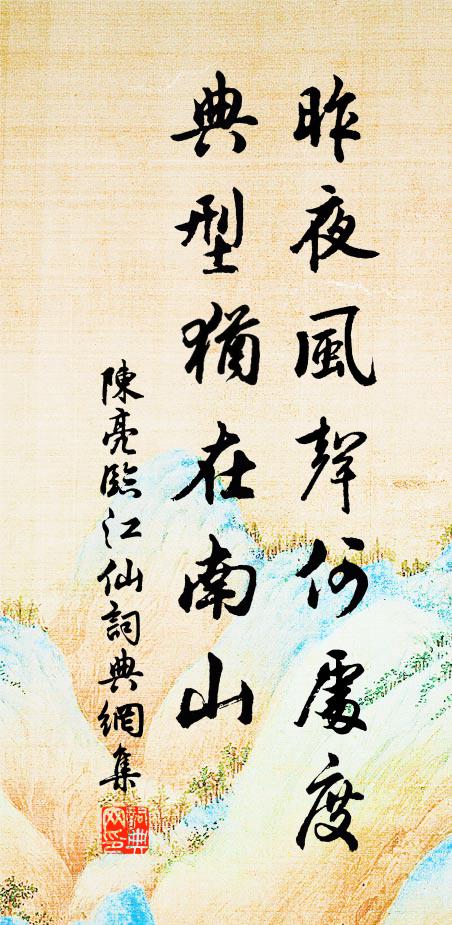 昨夜風聲何處度
典型猶在南山
陳亮臨江仙詞典網集
詞典網印